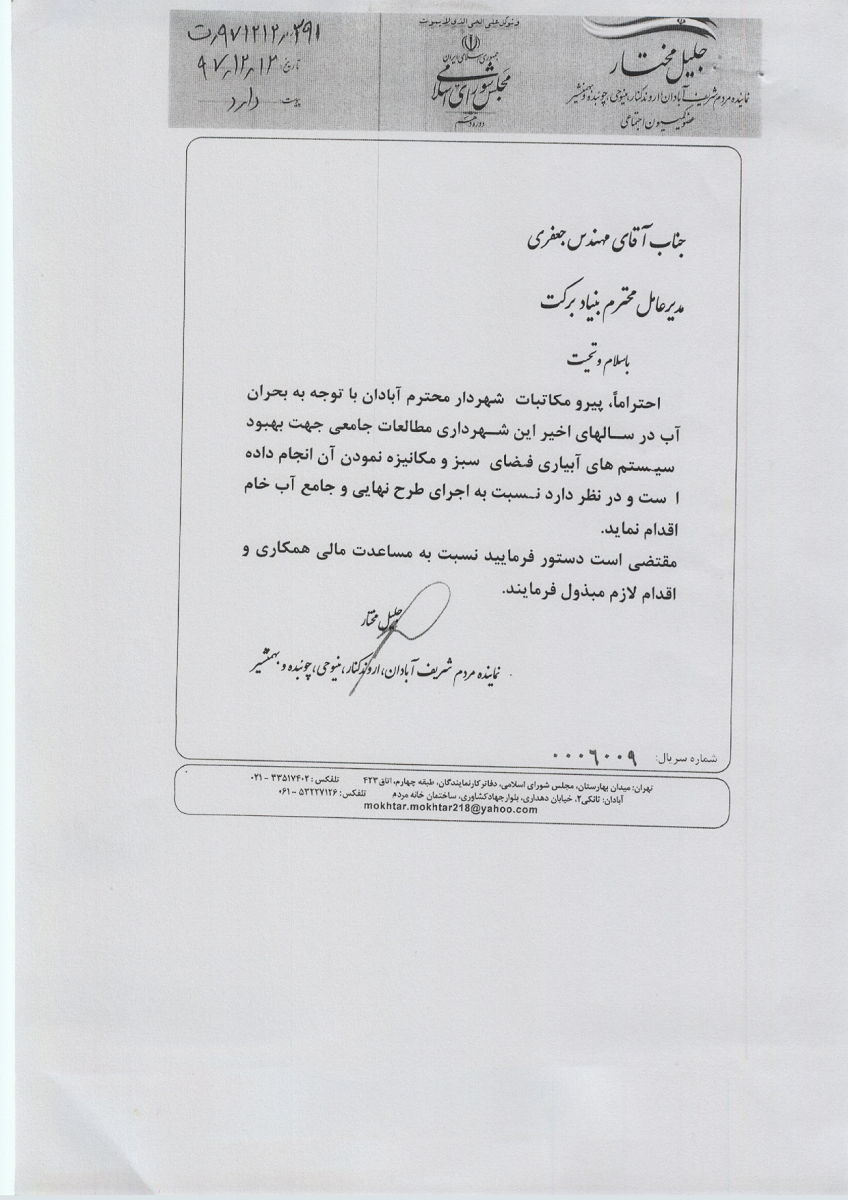 وتوکل علی الحی الذی لا یموت
جمهوری اسلامی ایران
مجلس شورای اسلامی
دوره دهم
جلیل مختار
نماینده مردم شریف آبادان، اروندکنار، منیوحی، چوئبده و بهمنشیر
عضو کمیسیون اجتماعی
تاریخ: ۹۷,۱۲,۱۲
پیوست: دارد
جناب آقای مهندس جعفری
مدیرعامل محترم بنیاد برکت
باسلام و تحیت
احتراماً، پیرو مکاتبات شهردار محترم آبادان با توجه به بحران
آب در سالهای اخیر این شهرداری مطالعات جامعی جهت بهبود
سیستم های آبیاری فضای سبز و مکانیزه نمودن آن انجام داده
ا ست و در نظر دارد نسبت به اجرای طرح نهایی و جامع آب خام
اقدام نماید.
مقتضی است دستور فرمایید نسبت به مساعدت مالی همکاری و
اقدام لازم مبذول فرمایند.
جلیل مختار
نماینده مردم شریف آبادان، اروندکنار، منیوحی، چوئبده و بهمنشیر
شماره سریال: ۰۰۰۶۰۰۹
تهران: میدان بهارستان، مجلس شورای اسلامی، دفاتر کار نمایندگان، طبقه چهارم، اتاق ۴۲۳ تلفکس: ۳۳۵۱۷۴۰۲ - ۰۲۱
آبادان: تانکی۲، خیابان دهداری، بلوار جهاد کشاورزی، ساختمان خانه مردم تلفکس: ۵۳۲۲۷۱۲۶ - ۰۶۱
mokhtar.mokhtar218@yahoo.com